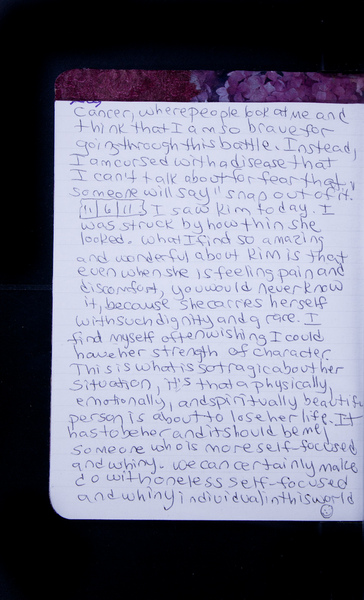 cancer, where people look at me and
think that I am so brave for
going through this battle. Instead,
I am cursed with a disease that
I can't talk about for fear that
someone will say "snap out of it.
11 6 11 I saw Kim today. I
was struck by how thin she
looked. What I find so amazing
and wonderful about Kim is that
even when she is feeling pain and
discomfort, you would never know
it, because she carries herself
with such dignity and grace. I
find myself often wishing I could
have her strength of character.
This is what is so tragic about her
situation, it's that a physically,
emotionally, and spiritually beautiful
person is about to lose her life. It
has to be her and it should be me,
someone who is more self-focused
and whiny. We can certainly make
do with one less self-focused
and whiny individual in this world